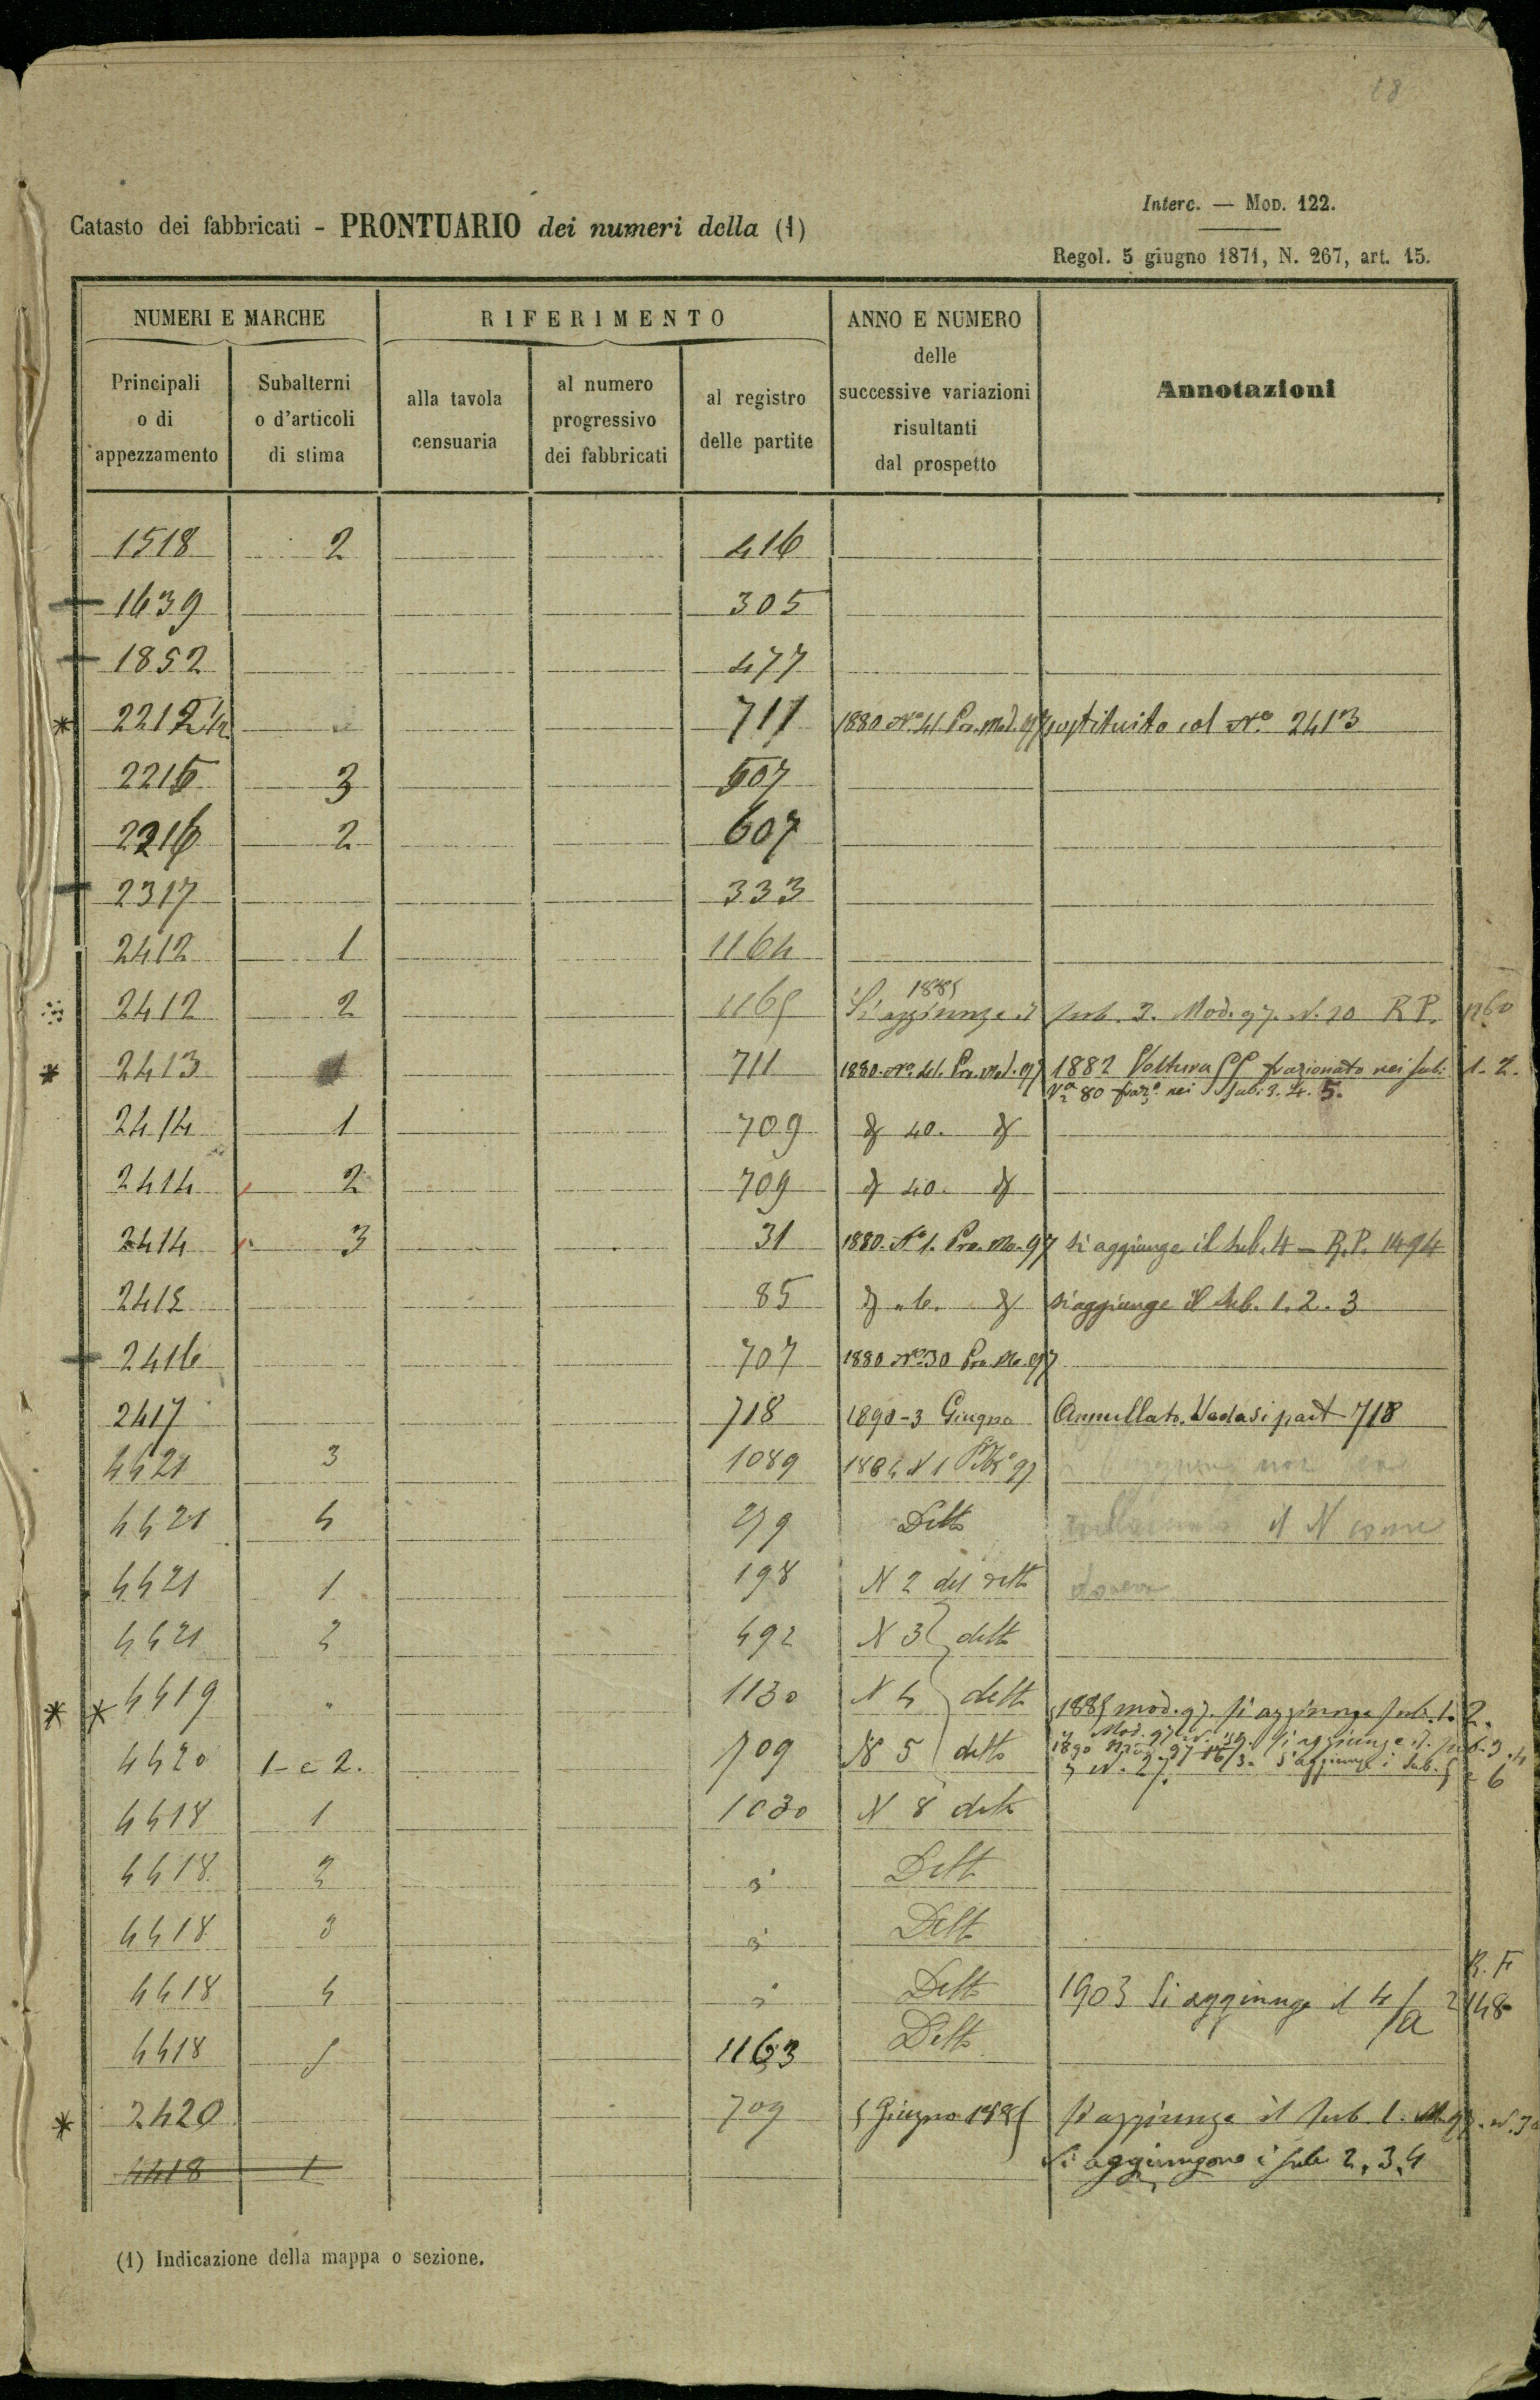 18
Interc. — Mod. 122.
Catasto dei fabbricati - PRONTUARIO dei numeri della (1)
Regol. 5 giugno 1871, N. 267, art. 15.
NUMERI E MARCHE
Principali o di appezzamento
Subalterni o d'articoli di stima
RIFERIMENTO
alla tavola censuaria
al numero progressivo dei fabbricati
al registro delle partite
ANNO E NUMERO delle successive variazioni risultanti dal prospetto
Annotazioni
1518 2 416
1639 305
1852 477
* 2212 1/2 711 1880 No. 41. Pro. Mod. 97 sostituito col No. 2413
2215 3 607
2216 2 607
2317 333
2412 1 1164
2412 2 1165 1885 Si aggiunge il sub. 3. Mod. 97. N. 20 R P. 1160
* 2413 711 1880. No. 41. Pro. Mod. 97 1882 Voltura frazionato nei sub: 1. 2.
80 fraz.o nei sub: 3. 4. 5.
2414 1 709 40.
2414 2 709 40.
2414 3 31 1880. No 1. Pro. Mo. 97 si aggiunge il sub. 4 - R.P. 1494
2415 85 " 6. si aggiunge il sub. 1. 2. 3
2416 707 1880 No. 30 Pro. Mo. 97
2417 718 1890-3 Giugno Annullato. Vedasi part 718
4421 3 1089 1884 N 1 97
4421 4 279 Detto il N come
4421 1 198 N 2 del detto
4421 2 492 N 3 detto
* * 4419 " 1130 N 4 detto 1885 mod. 97. si aggiunge sub. 1. 2.
4420 1 e 2. 709 N 5 detto Mod. 97 N. si aggiunge il sub. 3. 4
1890 N. 27. s'aggiunge i sub. 5 e 6
4418 1 1030 N 8 detto
4418 2 " Detto
4418 3 " Detto
R. F
4418 4 " Detto 1903 Si aggiunge il 4/a 2148
4418 5 1163 Detto
* 2420 709 5 Giugno 1885 si aggiunge il sub. 1. M. 97. N. 30
4418 1 Si aggiungono i sub 2, 3, 4
(1) Indicazione della mappa o sezione.